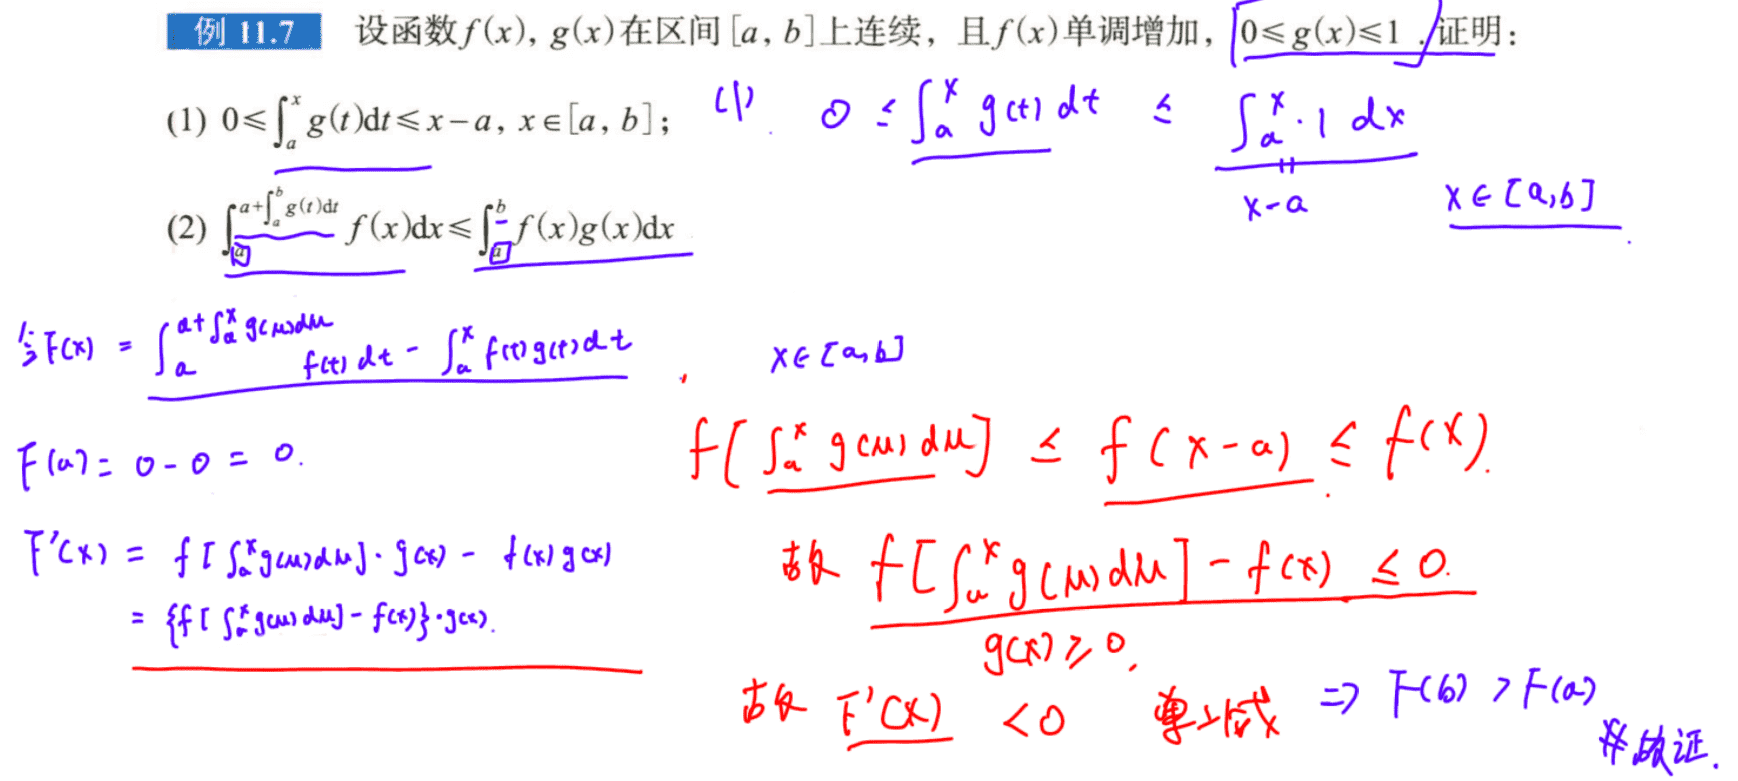 例 11.7 设函数f(x), g(x)在区间[a, b]上连续，且f(x)单调增加，0≤g(x)≤1．证明：
(1) 0≤∫ₐˣ g(t)dt≤x-a, x∈[a, b]；
(1). 0 ≤ ∫ₐˣ g(t) dt ≤ ∫ₐˣ·1 dx
x-a
x∈[a,b].
(2) ∫_a^{a+∫_a^b g(t)dt} f(x)dx≤∫_a^b f(x)g(x)dx
令F(x) = ∫_a^{a+∫_a^x g(u)du} f(t) dt - ∫_a^x f(t)g(t)dt, x∈[a,b]
F(a) = 0-0 = 0.
F'(x) = f[∫_a^x g(u)du]·g(x) - f(x)g(x)
= {f[∫_a^x g(u)du]-f(x)}·g(x).
f[∫_a^x g(u)du] ≤ f(x-a) ≤ f(x).
故 f[∫_a^x g(u)du] - f(x) ≤ 0.
g(x)≥0,
故 F'(x) <0 单减 => F(b) > F(a)
# 故证.